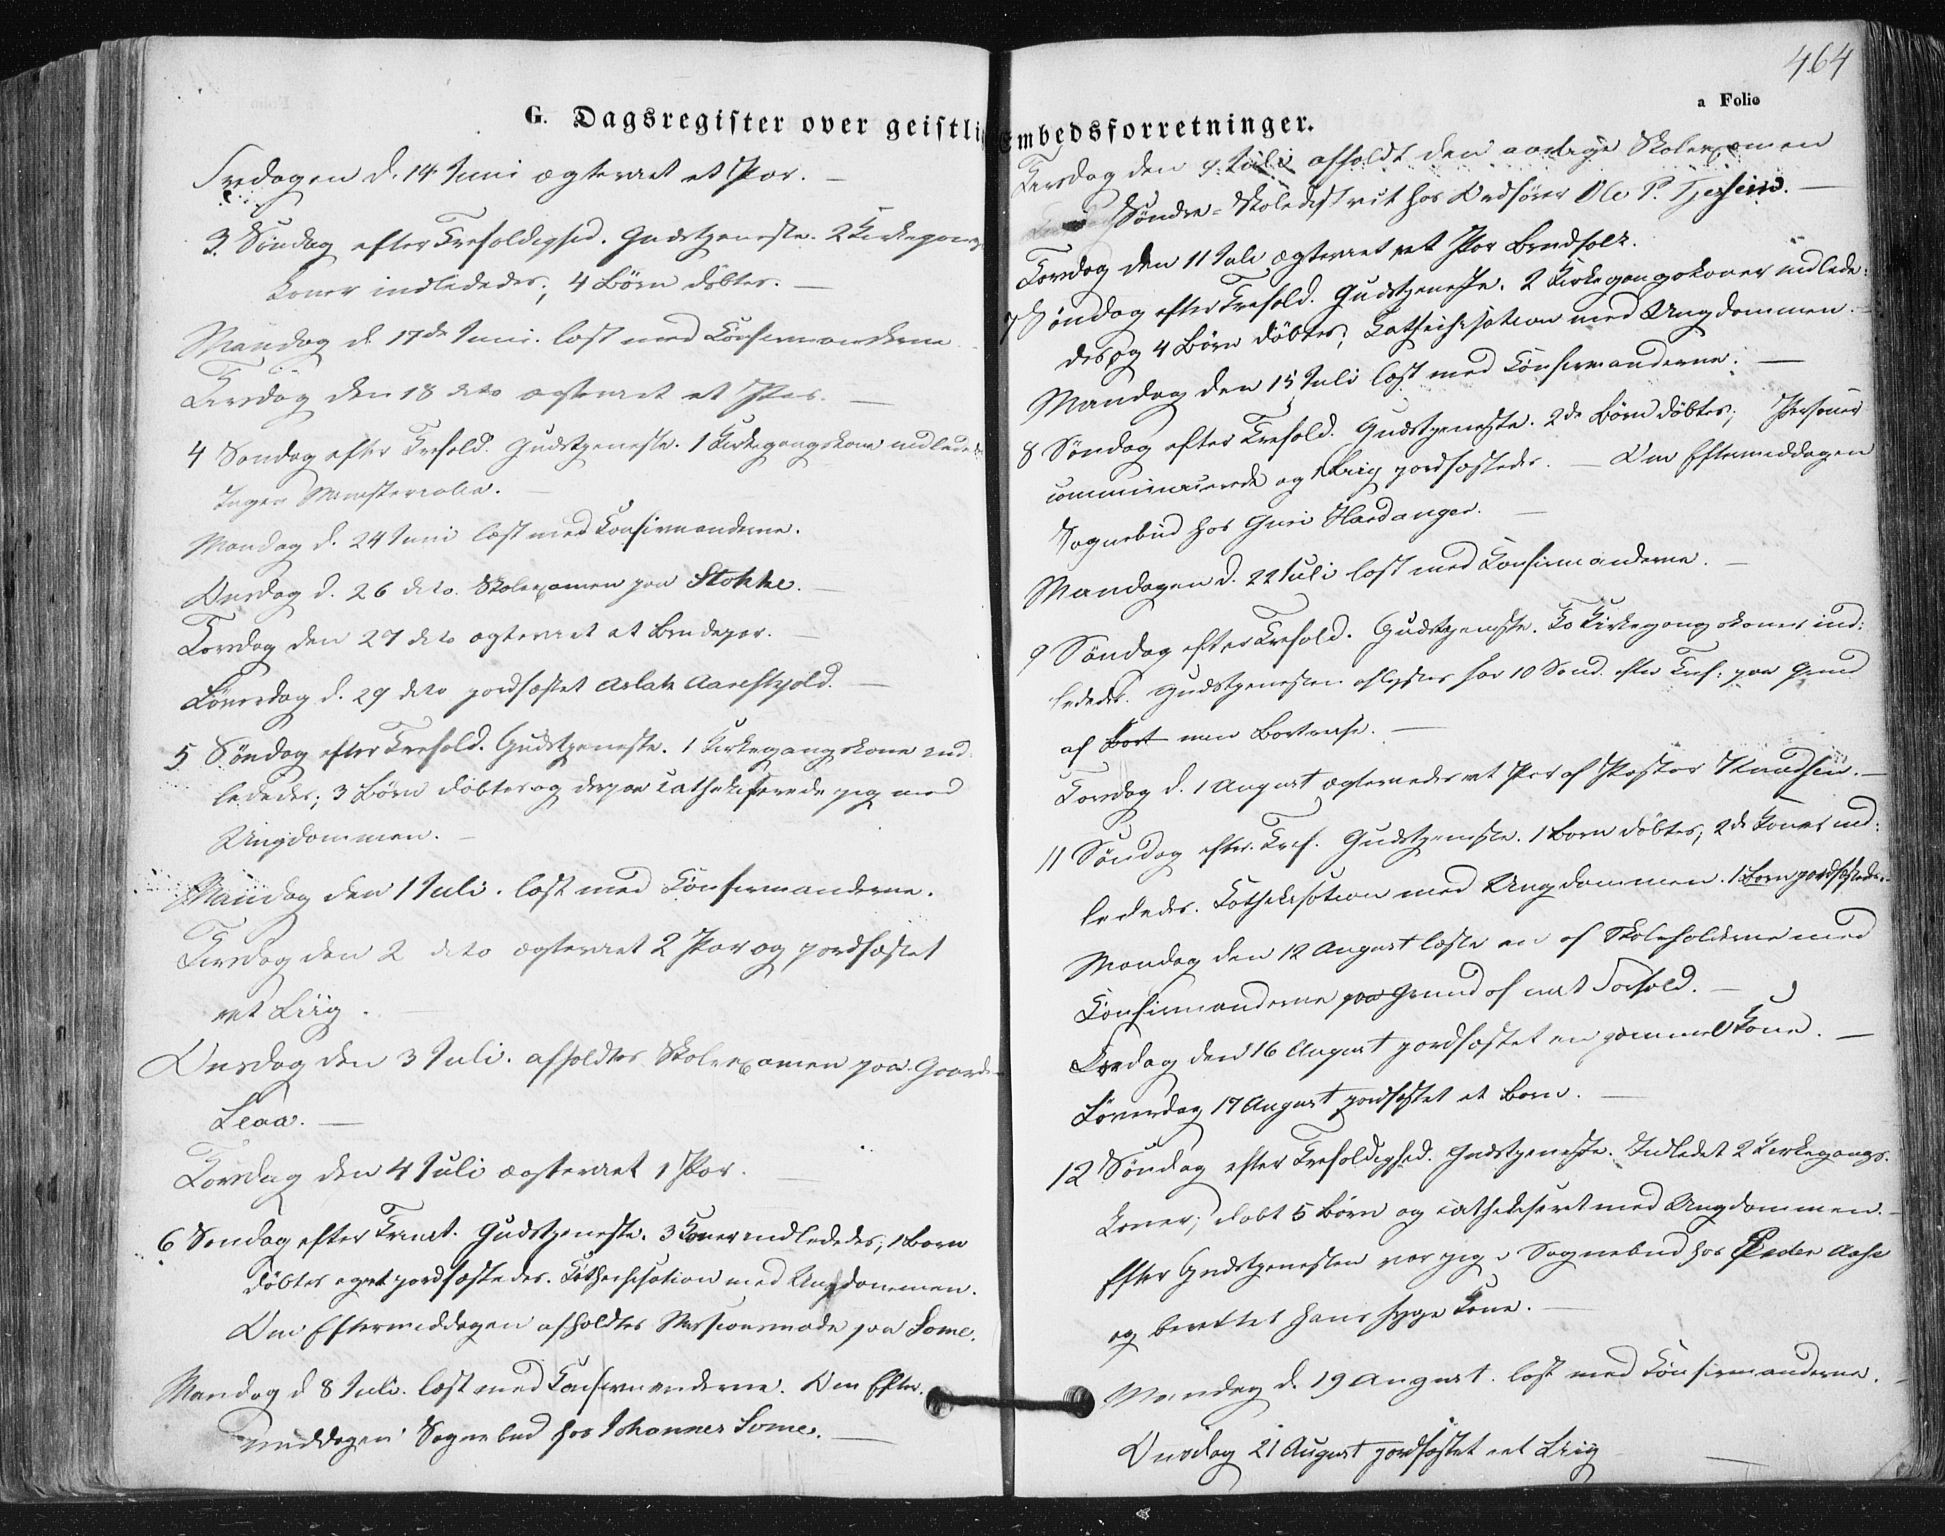 G. Dagsregister over geistli
Fredagen d. 14 Juni ægteviet et Par. —
3. Søndag efter Trefoldighed. Gudstjeneste. 2 Kirkegangs
koner indledede; 4 Børn døbtes. —
Mandag d. 17de Juni. læst med Confirmanderne
Tirsdag den 18 dito ægteviet et Par. —
4 Søndag efter Trefold. Gudstjeneste. 1 Kirkegangskone indlededes
Ingen Ministerialia. —
Mandag d. 24 Juni læst med Confirmanderne.
Onsdag d. 26 dito. Skoleexamen paa Stokke. —
Torsdag den 27 dito ægteviet et Brudepar.
Løverdag d. 29 dito jordfæstet Aslak Aareskjold. —
5 Søndag efter Trefold. Gudstjeneste. 1 Kirkegangskone ind
lededes; 3 Børn døbtes og derpaa catheciserede jeg med
Ungdommen. —
Mandag den 1 Juli. læst med Confirmanderne.
Tirsdag den 2 dito ægteviet 2 Par og jordfæstet
et Liig. —
Onsdag den 3 Juli. afholdtes Skoleexamen paa Gaarde
Leaa. —
Torsdag den 4 Juli ægteviet 1 Par. —
6 Søndag efter Trinit. Gudstjeneste. 3 Koner indlededes, 1 Barn
døbtes og et jordfæstedes. Cathechisation med Ungdommen.
Om Eftermiddagen afholdtes Missionsmøde paa Some.
Mandag d 8 Juli. læst med Confirmanderne. Om Efter-
middagen Sognebud hos Johannes Some. —
464
a Folio
Embedsforretninger.
Tirsdag den 9. Juli afholdt den aarlige Skoleexamen
Søndre-Skoledistrict hos Ordfører Ole P. Tjersein. —
Torsdag den 11 Juli ægteviet et Par Brudfolk.
7 Søndag efter Trefold. Gudstjeneste. 2 Kirkegangskoner indlede-
des og 4 Børn døbtes; Cathechisation med Ungdommen. —
Mandag den 15 Juli læst med Confirmanderne. —
8 Søndag efter Trefold. Gudstjeneste. 2de Børn døbtes; Personer
communicerede og 1 Liig jordfæstedes. — Om Eftermiddagen
Sognebud hos Guri Hardanger. —
Mandagen d. 22 Juli læst med Confirmanderne. —
9 Søndag efter Trefold. Gudstjeneste. To Kirkegangskoner ind-
lededes. Gudstjenesten aflystes for 10 Sønd. efter Tref: paa Grund
af Bort min Bortreise. —
Torsdag d. 1 August ægteviedes et Par af Pastor Knudsen. —
11 Søndag efter Tref. Gudstjeneste. 1 Barn døbtes; 2de Koner ind-
lededes. Cathekisation med Ungdommen. 1 Barn jordfæstedes.
Mandag den 12 August læste en af Skoleholderne med
Confirmanderne paa Grund af mit Forfald. —
den 16 August jordfæstet en gammel Kone. —
Løverdag 17 August jordfæstet et Barn. —
12 Søndag efter Trefoldighed. Gudstjeneste. Indledet 2 Kirkegangs-
koner; døbt 5 Børn og cathekiseret med Ungdommen. —
Efter Gudstjenesten var jeg i Sognebud hos Peder Aase
og berettet hans syge Kone. —
Mandag d. 19 August. læst med Confirmanderne.
Onsdag 21 August jordfæstet et Liig —